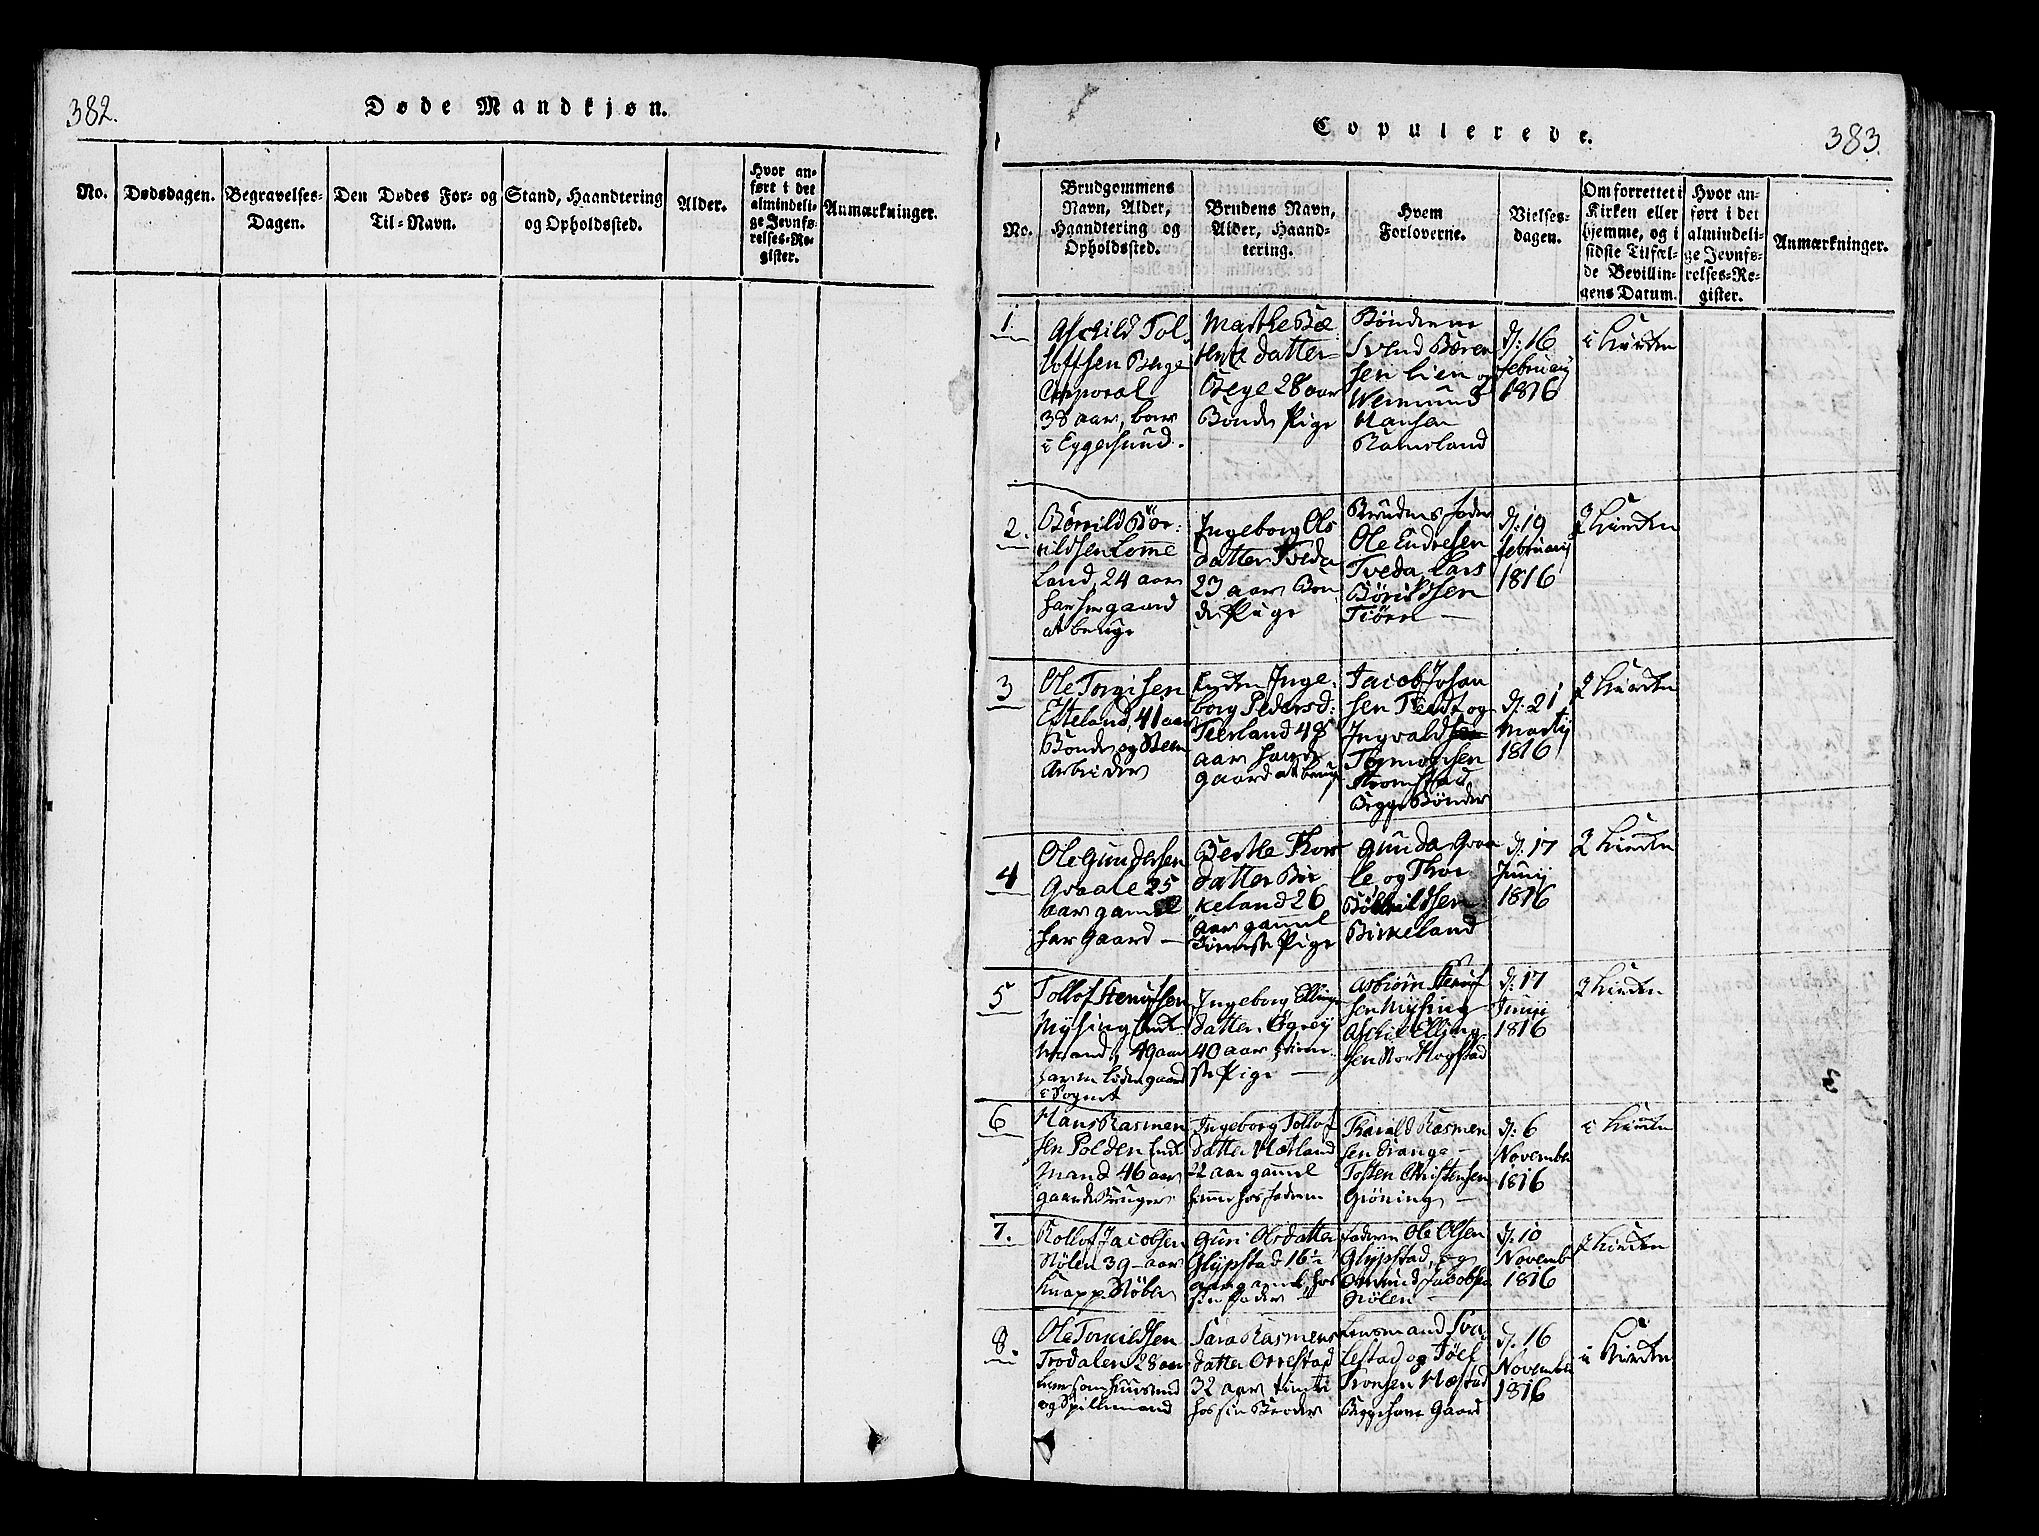 382.
Døde Mandkjøn.
No.
Dødsdagen.
Begravelses-
Dagen.
Den Dødes For- og
Til-Navn.
Stand, Haandtering
og Opholdssted.
Alder.
Hvor an-
ført i det
almindeli-
ge Jevnfø-
relses-Re-
gister.
Anmærkninger.
Copulerede.
383.
No.
Brudgommens
Navn, Alder,
Haandtering og
Opholdssted.
Brudens Navn,
Alder, Haand-
tering.
Hvem
Forloverne.
Vielses-
dagen.
Om forrettet i
Kirken eller
hjemme, og i
sidste Tilfæl-
de Bevillin-
gens Datum.
Hvor an-
ført i det
almindeli-
ge Jevnfø-
relses-Re-
gister.
Anmærkninger.
1.
Aschild Tol
loffsen Berge
Corporal
38 aar, boer
i Eggersund.
Marthe
datter
Bege 28 aar
Bonde Pige
Bønderne
Svend Børen
sen Lien og
Wermund
Hansen
Ramsland
d: 16
februarij
1816
i Kirken
2.
Børrild Bør:
rildsen Lomme
Land, 24 aar
har sin gaard
at bruge
Ingeborg Ols
datter Tveda
23 aar Bon
de Pige
Brudens fader
Ole Endresen
Tveda, Lars
Børildsen
Tiørn —
d: 19
februarij
1816
I Kirken
3
Ole Torgisen
Esteland, 41 aar
Bonde og Steen
Arbeider
Enken Inge:
borg Pedersd:
Teerland 48
aar haver
gaard at brug
Jacob Johan
sen Tvedt og
Ingvald
Tormodsen
Stromstad
Begge Bønder
d: 21
Martij
1816
I Kirken
4
Ole Gundersen
Qvaale 25
aar gammel
har Gaard —
Berthe Thors
datter Bir
keland 26
aar gammel
tienneste Pige
Gunda Qvaa
le og Thor
Børrildsen
Birkeland
d: 17
Junij
1816
I Kirken
5
Tollof Stenufsen
Mysing Enke
mand, 49 aar
har en liden gaard
i Sognet
Ingeborg Ellings
datter Øgreÿ
40 aar tienne
ste Pige —
Asbiørn Stenuf
sen Mysing
Aschil Elling
sen Nor Hogstad
d: 17
Junij
1816
I Kirken
6
Hans Rasmen
sen Polden Enke
mand 46 aar
gaards Bruger
Ingeborg Tollof
datter Mætland
22 aar gammel
hjemme hos faderen
Tharald Rasmen
sen Drange —
Tosten Christensen
Grøning —
d: 6
November
1816
i Kirken
7.
Rollof Jacobsen
Nølen 39 aar
Knapp Støber
Guri Olsdatter
Glypstad 16½
aar gammel hos
sin fader
faderen Ole Olsen
Glypstad, og
Omund Jacobsen
Nølen —
d: 10
Novemb
1816
I Kirken
8.
Ole Torkildsen
Trodalen 28 aar
og Spillemand
Sara Rasmens
datter Orrestad
32 aar
hos sin Broder
Lensmand Sva
lestad og Joel
Tronsen Mæstad
Begge have Gaard
d. 16
November
1816
i Kirken